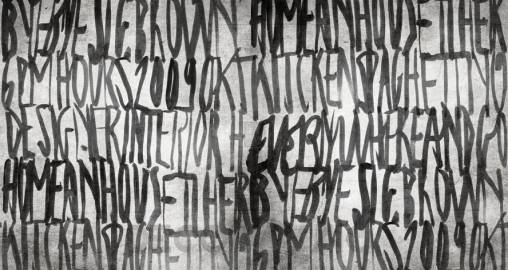 BY ESME SIE BROWN HOME AN HOUSE
6PM HOURS 2009 OKT KITCKEN SPAGHETTI
DESIGNER INTERIOR H EVERYWHERE AND GO
HOME AN HOUSE BY ESME SIE BROWN
KITCKEN SPAGHETTI 6PM HOURS 2009 OKT